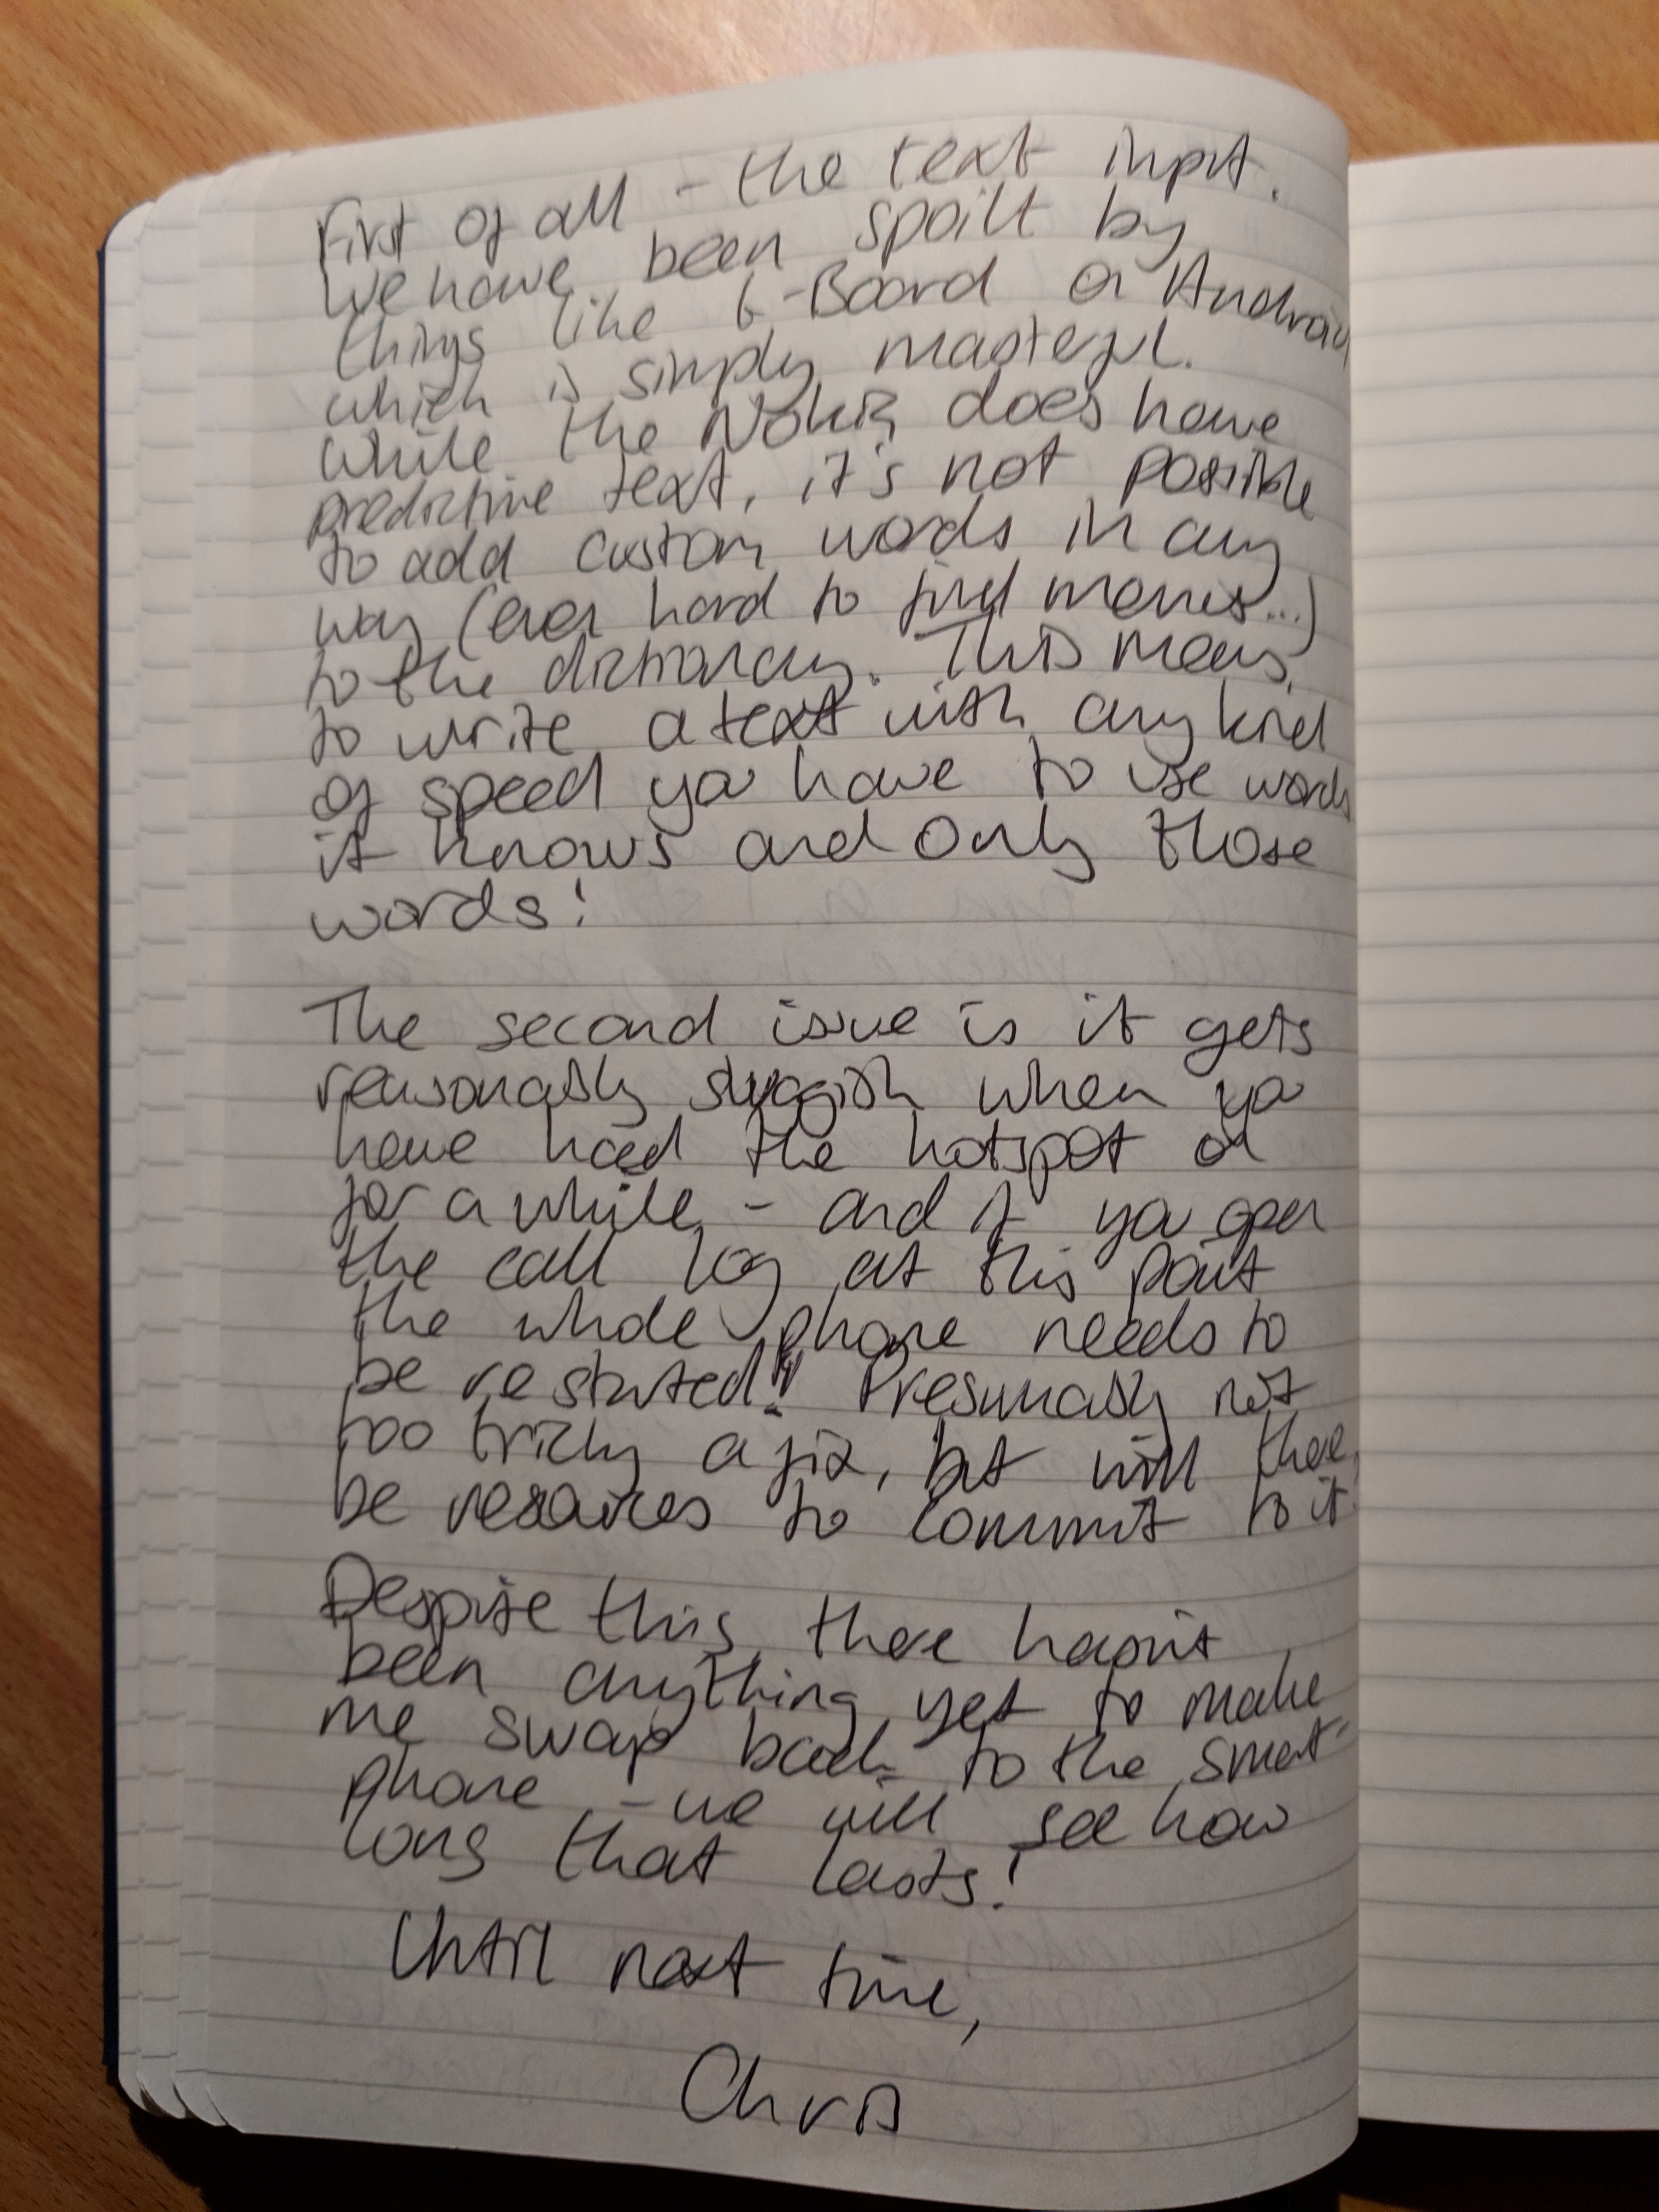 First of all - the text input.
We have been spoilt by
things like G-Board on Android
which is simply masterful.
While the Nokia does have
predictive text, it's not possible
to add custom words in any
way (even hard to find menus...)
to the dictionary. This means,
to write a text with any kind
of speed you have to use words
it knows and only those
words!
The second issue is it gets
reasonably sluggish when you
have had the hotspot on
for a while - and if you open
the call log at this point
the whole phone needs to
be restarted! Presumably not
too tricky a fix, but will there
be resources to commit to it
Despite this, there hasn't
been anything yet to make
me swap back to the smart-
phone - we will see how
long that lasts!
Until next time,
Chris